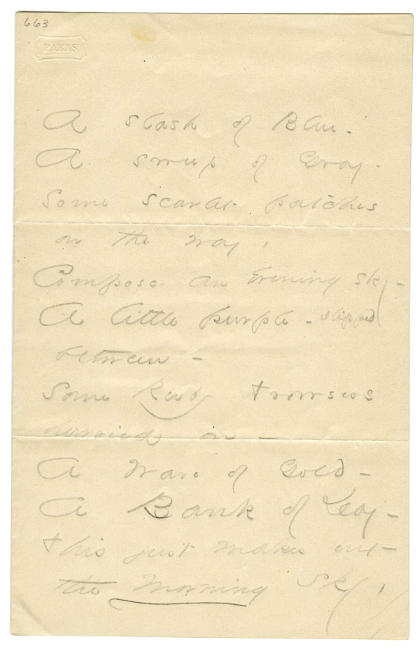 663
PARIS
A slash of Blue -
A sweep of Gray -
Some scarlet patches
on the way,
Compose an Evening Sky -
A little purple - slipped
between -
Some Ruby trowsers
hurried on -
A Wave of Gold -
A Bank of Day -
This just makes out
the Morning Sky.